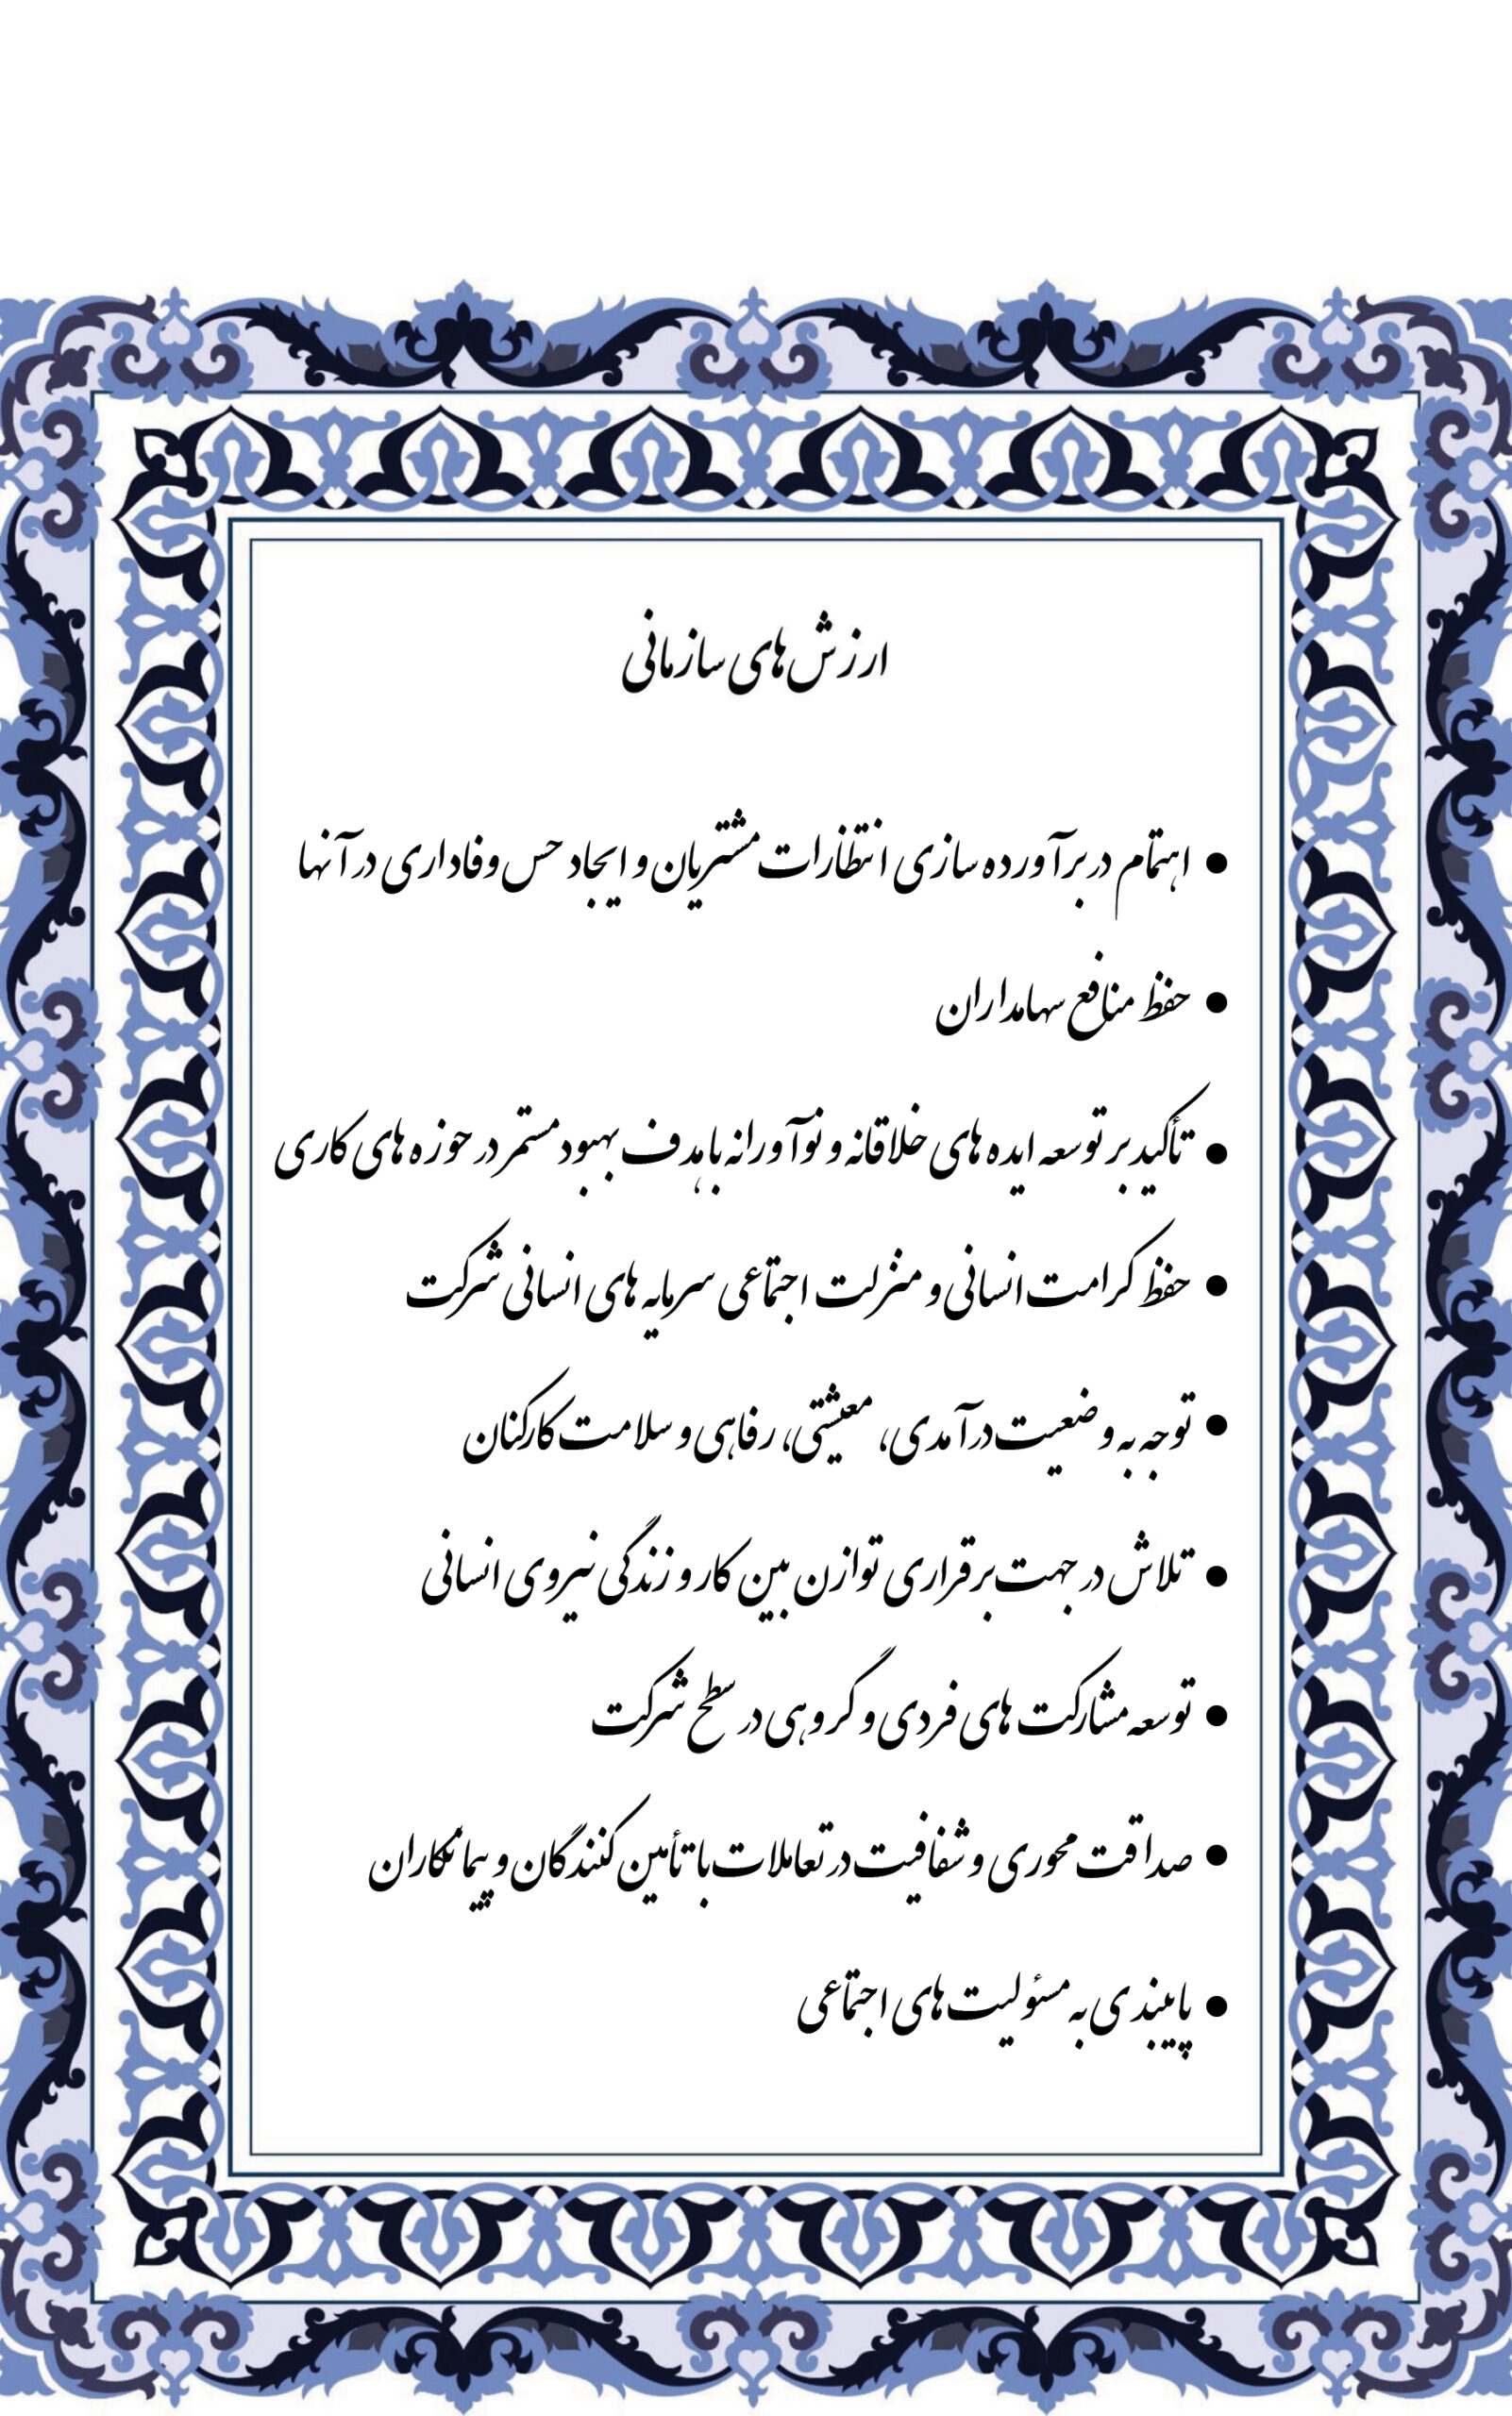 ارزش‌های سازمانی
• اهتمام در برآورده سازی انتظارات مشتریان و ایجاد حس وفاداری در آنها
• حفظ منافع سهامداران
• تأکید بر توسعه ایده های خلاقانه و نوآورانه با هدف بهبود مستمر در حوزه های کاری
• حفظ کرامت انسانی و منزلت اجتماعی سرمایه های انسانی شرکت
• توجه به وضعیت درآمدی، معیشتی، رفاهی و سلامت کارکنان
• تلاش در جهت برقراری توازن بین کار و زندگی نیروی انسانی
• توسعه مشارکت های فردی و گروهی در سطح شرکت
• صداقت محوری و شفافیت در تعاملات با تأمین کنندگان و پیمانکاران
• پایبندی به مسئولیت های اجتماعی